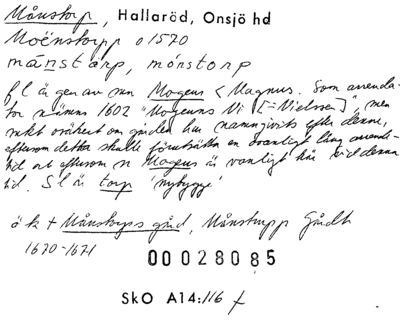 Månstorp, Hallaröd, Onsjö hd
Moënstorpp o 1570
månstårp, månstorp
f l är gen av mn Mogens < Magnus. Som arrenda-
tor nämns 1602 "Mogenns Ni [= Nielssen]", men
mkt osäkert om gården har namngivits efter denne,
eftersom detta skulle förutsätta en ovanligt lång arrende-
tid och eftersom n Mogens är vanligt här vid denna
tid. S l är torp 'nybygge'
ö k + Månstorps gård, Månstrupp Gårdh
1670-1671
00028085
SkO A14:116 f